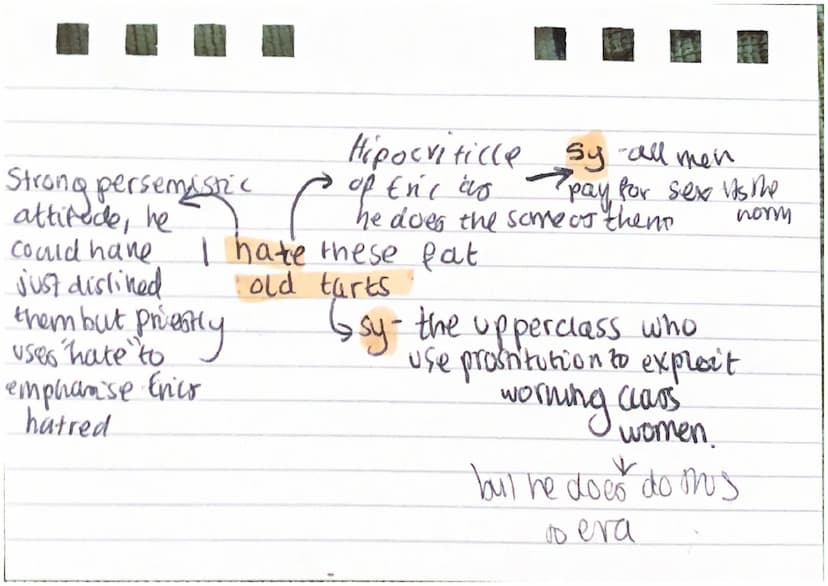 Strong persemistic
attitede, he
could have
just dislined
them but priestly
uses "hate" to
emphamise Erics
hatred
Hipocriticle
of Eric as
he does the same as them
sy - all men
pay for sex its the
norm
I hate these fat
old tarts
sy - the upperclass who
use prositution to exploit
working class
women.
but he does do this
era